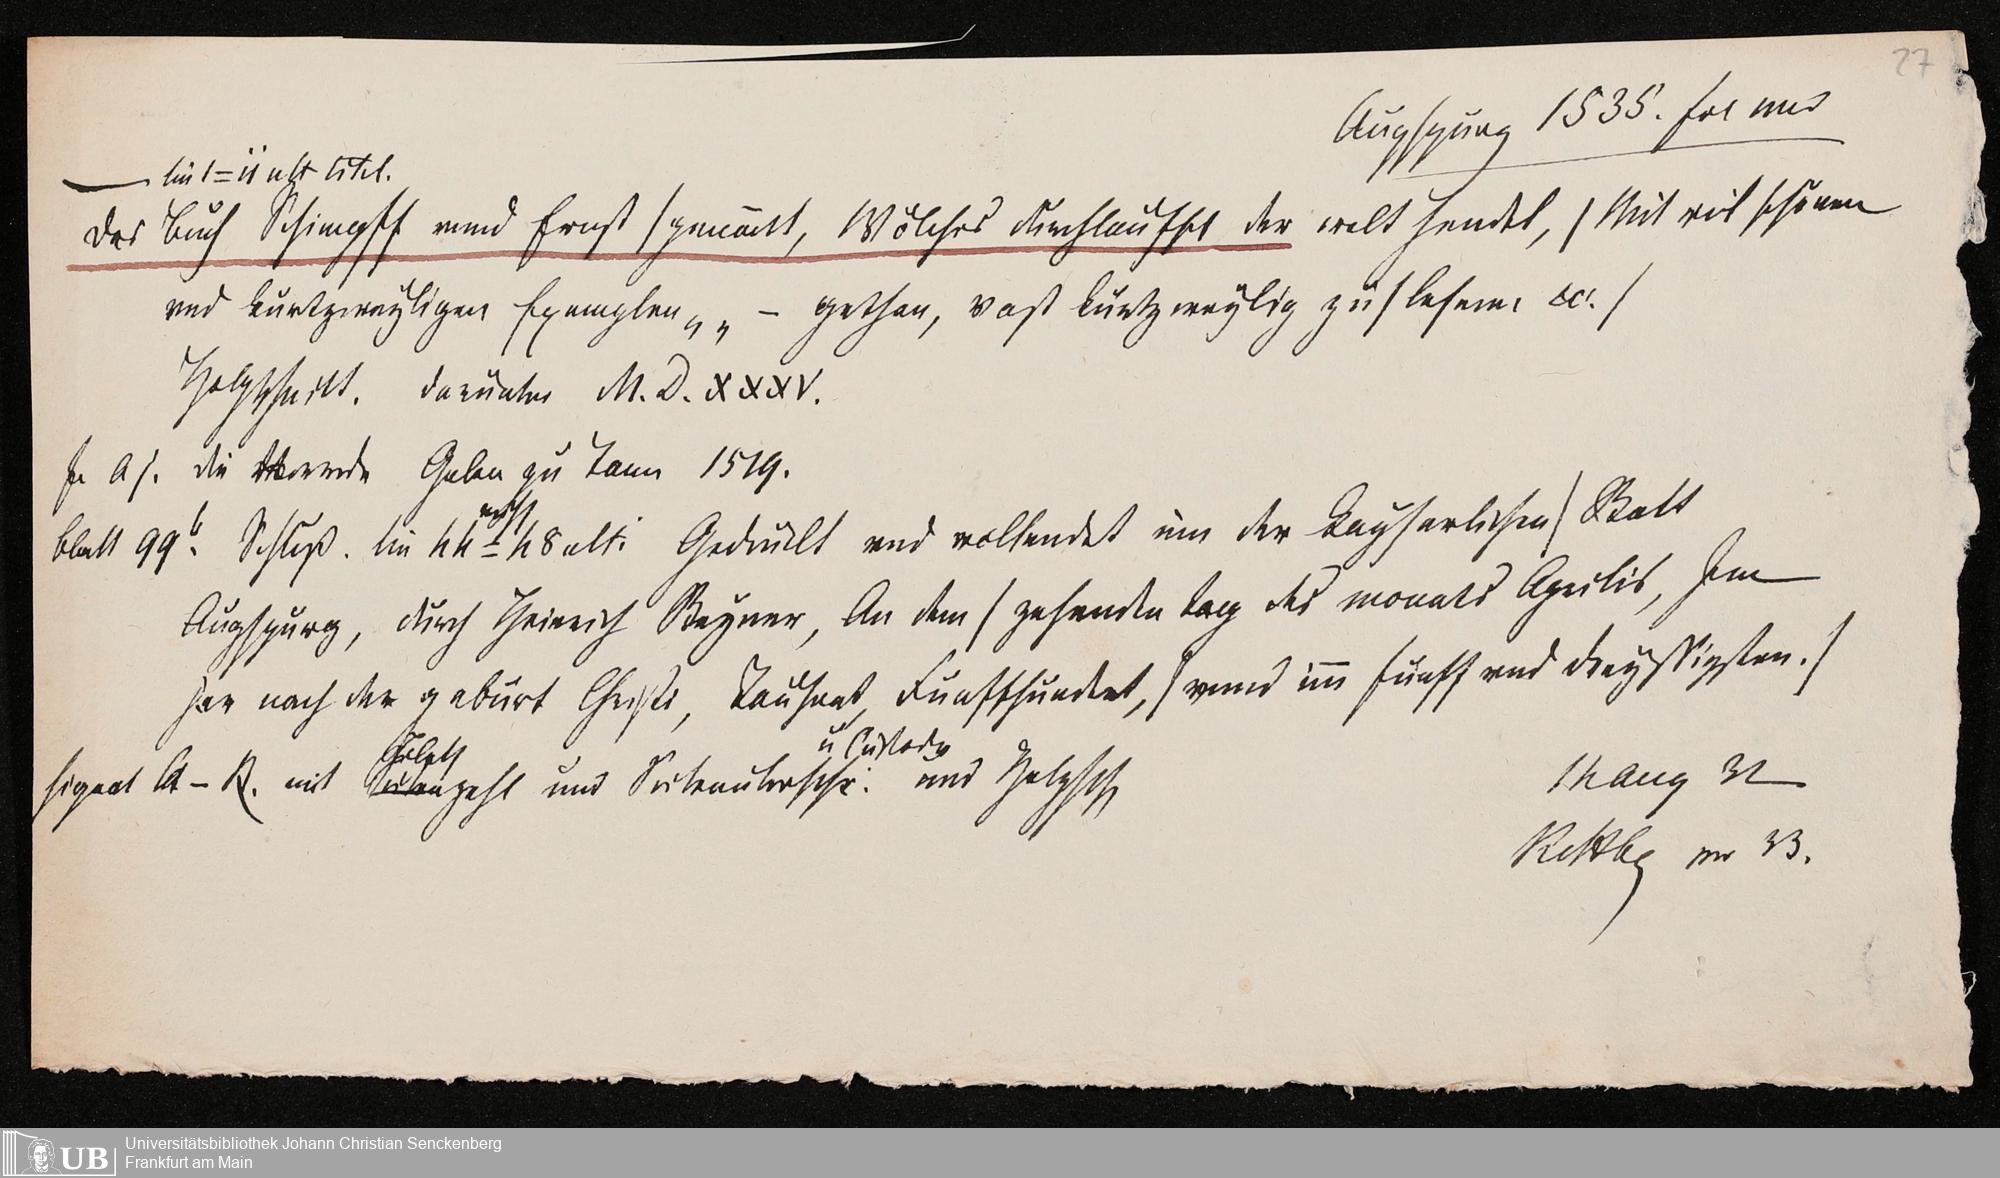 27
Augspurg 1535. fol
lin 1= titel.
Das Buch Schimpff vnnd Ernst / genañt, Wölches durchlauffet der welt hendel, / Mit vil schönen
vnd kurtzweyligen Exemplen „ „ – gethon, vast kurtzweylig zů / lesenn: ꝛc. /
Holzschnitt. darunter M.D.XXXV.
die Vorrede Geben zu Tann 1519.
Blatt 99b. Schluß. lin Gedruckt vnd vollendet inn der Kayserlichen / Statt
Augspurg, durch Heinrich Steyner, An dem / zehenden tag des monats Aprilis, Jm
jar nach der geburt Christi, Tausent Funffhundert, / vnnd im funff vnd dreyssigsten. /
Signat A – R. mit Seitenzahl und Seitenüberschr: u Custoden und Holzsch
Universitätsbibliothek Johann Christian Senckenberg
UB Frankfurt am Main